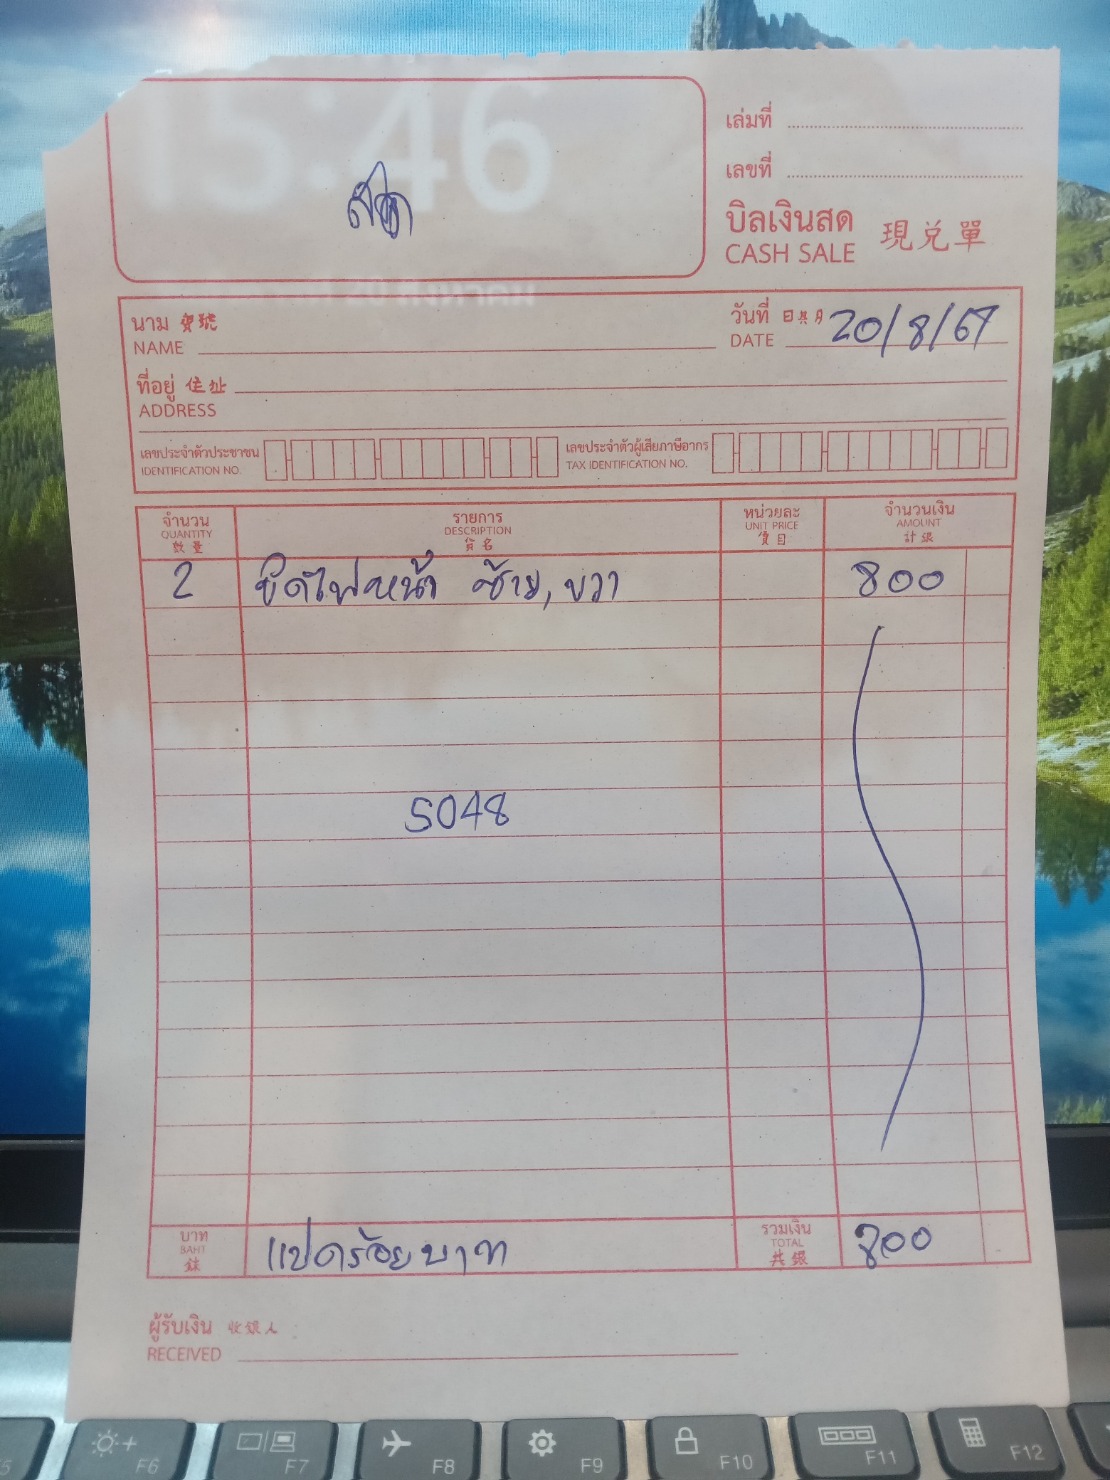 15:46
สด
เล่มที่
เลขที่
บิลเงินสด 現兑單
CASH SALE
นาม 寶號
NAME
วันที่ 日共月 20/8/67
DATE
ที่อยู่ 住址
ADDRESS
เลขประจำตัวประชาชน
IDENTIFICATION NO.
เลขประจำตัวผู้เสียภาษีอากร
TAX IDENTIFICATION NO.
จำนวน รายการ หน่วยละ จำนวนเงิน
QUANTITY DESCRIPTION UNIT PRICE AMOUNT
數量 貨名 價目 計銀
2 ขัดไฟหน้า ซ้าย, ขวา 800
5048
บาท แปดร้อยบาท รวมเงิน 800
BAHT TOTAL
銖 共銀
ผู้รับเงิน 收銀人
RECEIVED
F6
F7
F8
F9
F10
F11
F12